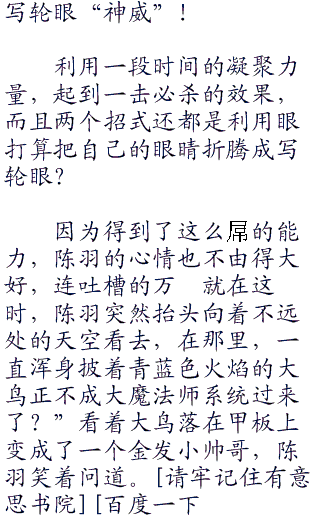 写轮眼“神威”！
利用一段时间的凝聚力
量，起到一击必杀的效果，
而且两个招式还都是利用眼
打算把自己的眼睛折腾成写
轮眼？
因为得到了这么屌的能
力，陈羽的心情也不由得大
好，连吐槽的万　就在这
时，陈羽突然抬头向着不远
处的天空看去，在那里，一
直浑身披着青蓝色火焰的大
鸟正不成大魔法师系统过来
了？”看着大鸟落在甲板上
变成了一个金发小帅哥，陈
羽笑着问道。[请牢记住有意
思书院][百度一下